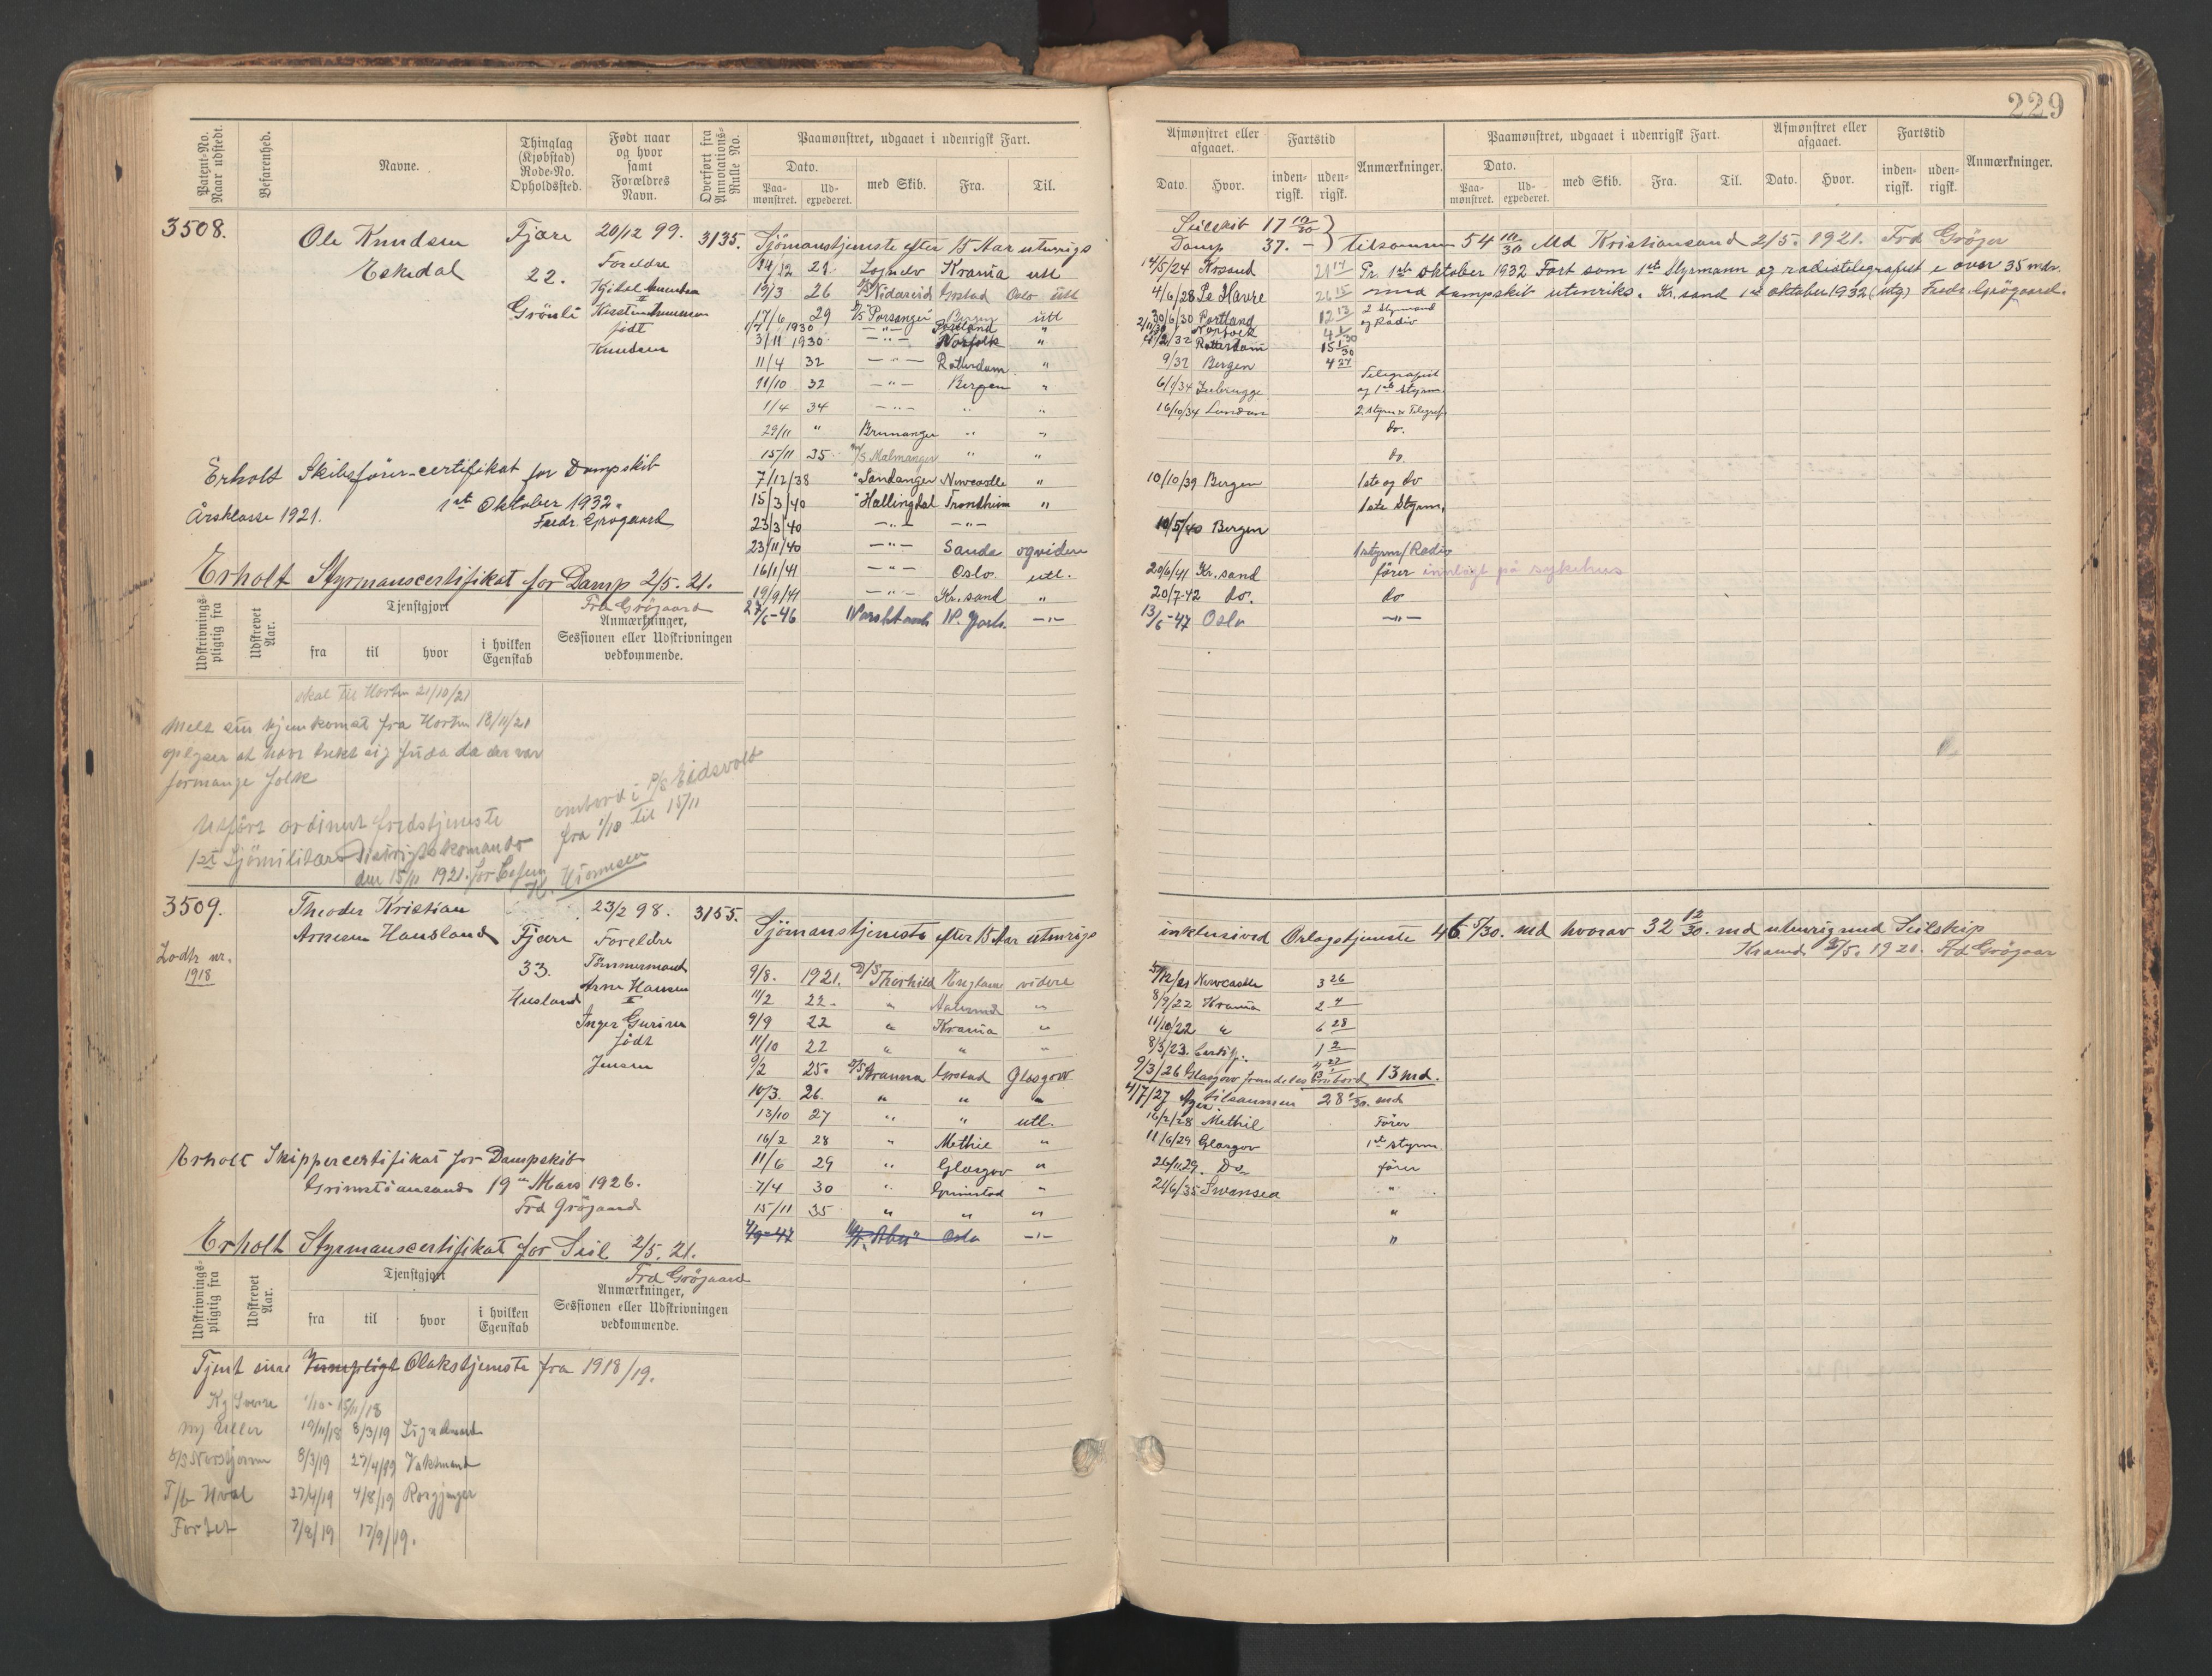 229
Patent-No. Naar udstedt.
Befarenhed.
Navne.
Thinglag (Kjøbstad) Rode-No. Opholdssted.
Født naar og hvor samt Forældres Navn.
Overført fra Annotations-Rulle No.
Paamønstret, udgaaet i udenrigsk Fart.
Dato.
Paa-mønstret.
Ud-expederet.
med Skib.
Fra.
Til.
Afmønstret eller afgaaet.
Dato.
Hvor.
Fartstid
inden-rigsk.
uden-rigsk.
Anmærkninger.
Paamønstret, udgaaet i udenrigsk Fart.
Dato.
Paa-mønstret.
Ud-expederet.
med Skib.
Fra.
Til.
Afmønstret eller afgaaet.
Dato.
Hvor.
Fartstid
inden-rigsk.
uden-rigsk.
Anmærkninger.
3508.
Ole Knudsen
Eskedal
Fjære
22.
Grönli
20/12 99.
Foreldre
Kjetel
födt
Knudsen
3135.
Sjömanstjeneste efter 15 Aar utenrigs
Seilskib 17 10/30
Damp 37. –
tilsammen 54 10/30 Md Kristiansand 2/5. 1921. Frd Gröger
14/12 21 Krania utl 14/5/24 Krsand
19/3 26 Nidareid Grstad Oslo utl 4/6/28 Le Havre
Pr. 1ste oktober 1932 Fart som 1ste Styrmann og radiotelegrafist i over 35 mdr.
med dampskib utenriks. Kr.sand 1ste oktober 1932 (utg) Fredr. Grögaard.
17/6 29 M/S Porsanger Bergen utl 30/6/30 Portland 12 13 2 Styrmand
1/7 1930 – " – Portland " 2/11/30 Norfolk og Radio
3/11 1930 – " – Norfolk " Rotterdam 15 1/30
11/4 32 – " – Rotterdam " 9/32 Bergen 4 27
11/10 32 – " – Bergen " 6/1/34 Zeebrugge Telegrafist og 1ste styrm.
1/4 34 – " – " " 16/10/34 London 2. styrm & Telegraf.
29/11 " Brunanger " " do.
15/11 35 M/S Malmanger " " do.
7/12/38 " Sandanger Newcastle " 10/10/39 Bergen 1ste og do
15/3/40 " Hallingdal Trondheim " 1ste Styrm.
23/3/40 – " – – " – 10/5/40 Bergen
23/11/40 – " – Sande og videre 1 styrm/Radio
16/1/41 – " – Oslo. utl. 20/6/41 Kr.sand fører innlagt på sykehus
19/9/41 – " – Kr.sand " 20/7-42 do. do
27/6-46 N. York – " – 13/6-47 Oslo – " –
Erholt Skibsförer-certifikat for Dampskib
1ste Oktober 1932.
Årsklasse 1921.
Fredr. Grøgaard
Erholt Styrmanscertifikat for Damp 2/5. 21.
Frd Grögaard
Udskrivnings-pligtig fra
Udskrevet Aar.
Tjenstgjort
fra
til
hvor
i hvilken Egenskab
Anmærkninger, Sessionen eller Udskrivningen vedkommende.
skal til Horten 21/10/21
Melt sin hjemkomst fra Horten 18/11/21
oplyser at have trekt sig
formange folk
Utført ordinert fredstjeneste
ombord i P/S Eidsvold
fra 1/10 til 15/11
1ste Sjömilitære Distriktskomando
den 15/11 1921.
3509.
Lodtr nr.
1918
Theoder Kristian
Arnesen Hausland
Fjære
33.
Husland
23/2 98.
Foreldre
Tömmermand
Arne Hansen
Inger
födt
Jensen
3155.
Sjömanstjeneste efter 15 Aar utenrigs
inklusived Orlogstjeneste 46 5/30. md hvorav 32 12/30. md utenrigs med Seilskip
Krsand 2/5. 1921. Frd Grögaar
9/8. 1921. D/S Thorhild England videre 5/12/21 Newcastle 3 26
11/2 22. " " 8/9/22 Krania 2 4
9/9 22 " Krania " 11/10/22 " 6 28
11/10 22 " " " 8/3/23. 1 2
9/2 25. D/S Grstad Glasgow 9/3/26 Glasgow fremdeles ombord 13 md.
10/3. 26. " " " 4/7/27 tilsammen 28 1/30. md
13/10 27 " " utl. 16/2/28 Methil Förer
16/2 28 " Methil " 11/6/29 Glasgov 1st styrm
11/6 29 " Glasgov " 26/11 29. Do fører
7/4 30 " Grimstad " 21/6/35 Swansea "
15/11 35 " " " "
4/9-47 Oslo – " – "
Erholt Skippercertifikat for Dampskib
19de Mars 1926.
Frd Grögaard
Erholt Styrmanscertifikat for Seil 2/5. 21.
Frd Grögaard
Udskrivnings-pligtig fra
Udskrevet Aar.
Tjenstgjort
fra
til
hvor
i hvilken Egenskab
Anmærkninger, Sessionen eller Udskrivningen vedkommende.
Tjent sine Vernepligt fra 1918/19.
Kg Sverre 1/10 - 15/11/18
Uller 19/11/18 8/3/19 Signalmand
8/3/19 27/4/19 Vaktmand
T/b Hval 27/4/19 4/8/19 Rorgjenger
Fortet 7/8/19 17/9/19.